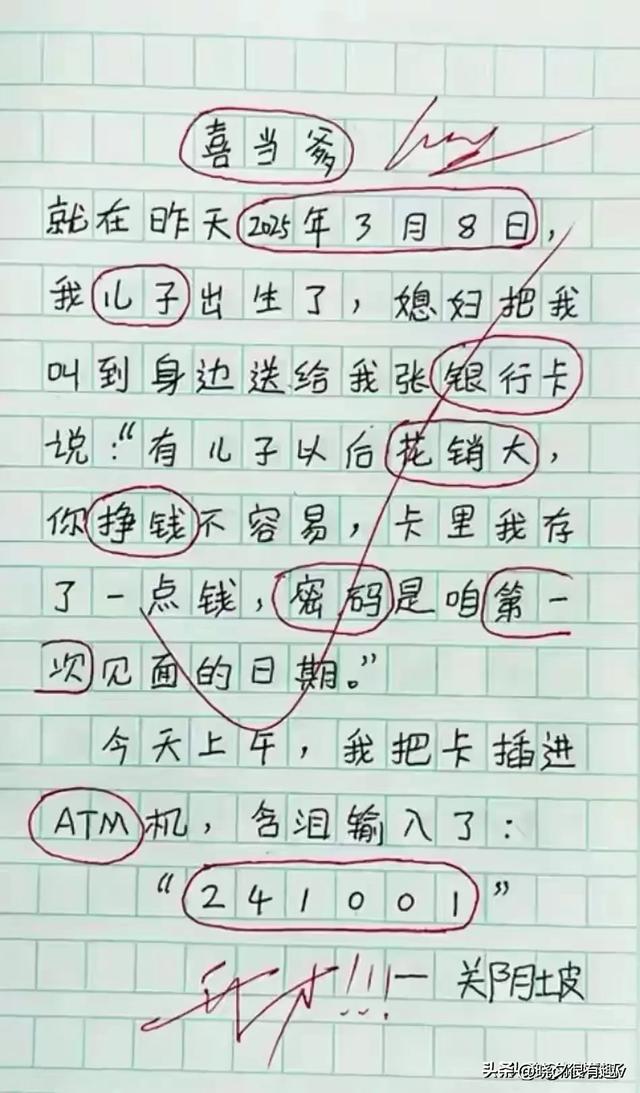 喜当爹
就在昨天2025年3月8日，
我儿子出生了，媳妇把我
叫到身边送给我张银行卡
说：“有儿子以后花销大，
你挣钱不容易，卡里我存
了一点钱，密码是咱第一
次见面的日期。”
今天上午，我把卡插进
ATM机，含泪输入了：
“241001”
!!!一 关阴土皮
头条 @晓文很有趣